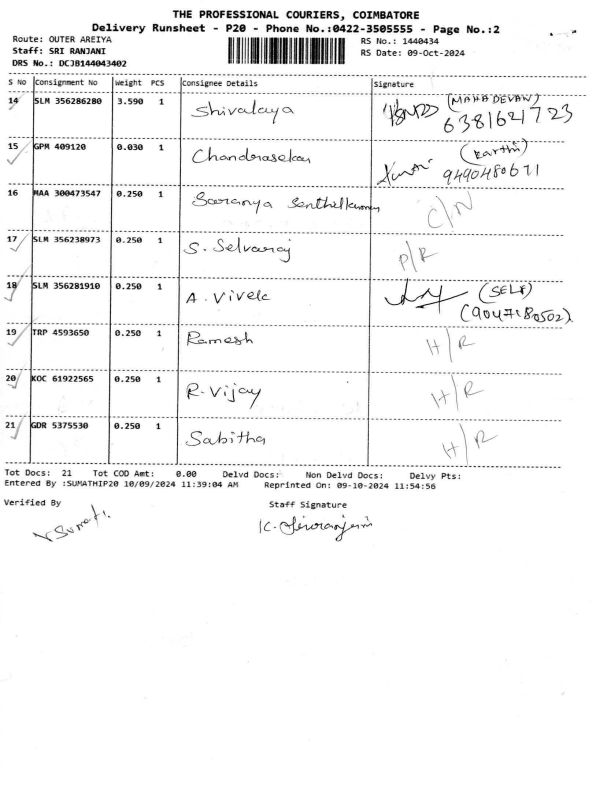 THE PROFESSIONAL COURIERS, COIMBATORE
Delivery Runsheet - P20 - Phone No.:0422-3505555 - Page No.:2
Route: OUTER AREIYA RS No.: 1440434
Staff: SRI RANJANI RS Date: 09-Oct-2024
DRS No.: DCJB144043402
S No Consignment No Weight PCS Consignee Details Signature
14 SLM 356286280 3.590 1 Shivalaya (MAHADEVAN) 6381621723
15 GPM 409120 0.030 1 Chandrasekar (Karthi) 9490480671
16 MAA 300473547 0.250 1 Saranya Senthilkumar C/N
17 SLM 356238973 0.250 1 S. Selvaraj P/R
18 SLM 356281910 0.250 1 A. Vivek (SELF) (9047180502)
19 TRP 4593650 0.250 1 Ramesh H/R
20 KOC 61922565 0.250 1 R. Vijay H/R
21 GDR 5375530 0.250 1 Sabitha H/R
Tot Docs: 21 Tot COD Amt: 0.00 Delvd Docs: Non Delvd Docs: Delvy Pts:
Entered By :SUMATHIP20 10/09/2024 11:39:04 AM Reprinted On: 09-10-2024 11:54:56
Verified By Staff Signature